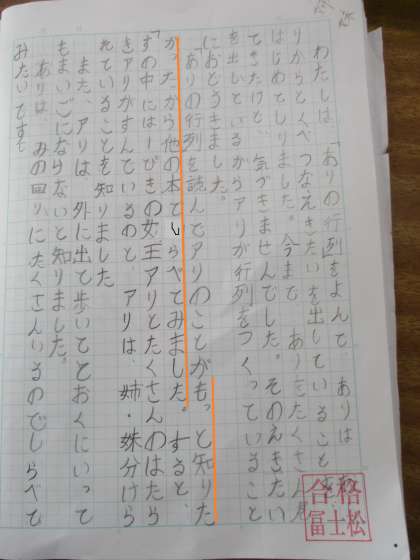 わたしは、「ありの行列」をよんで、ありは
りからとくべつなえきたいを出していること
はじめてしりました。今まで、ありをたくさん見
てきたけど、気づきませんでした。そのえきたい
を出しているからアリが行列をつくっていること
におどろきました。
「ありの行列」を読んでアリのことがもっと知りた
かったから他の本でしらべてみました。すると、
すの中には一ぴきの女王アリとたくさんのはたら
きアリがすんでいるのと、アリは、姉・妹分けら
れていることを知りました
また、アリは外に出て歩いてとおくにいって
もまいごにならないと知りました。
ありは、みの回りにたくさんいるのでしらべて
みたいです
合格
冨士松